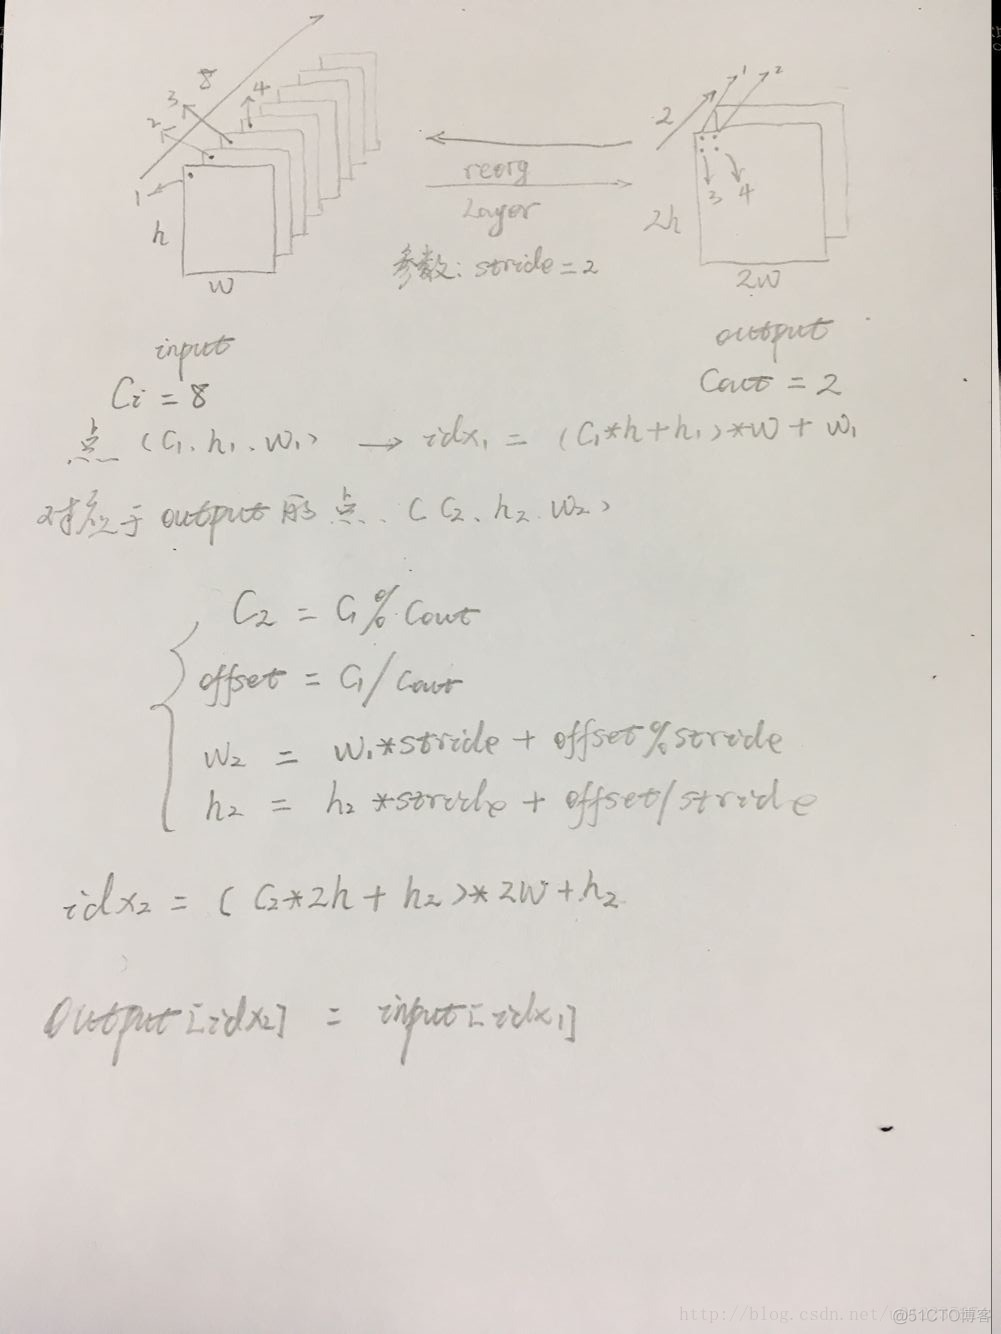 8
3
4
2
1
h
w
reorg
Layer
参数: stride = 2
2
1
2
3
4
2h
2w
input
output
Ci = 8
Cout = 2
点 (C₁、h₁、w₁) → idx₁ = (C₁*h+h₁)*w + w₁
对应于 output 的点、(C₂、h₂、w₂)
C₂ = C₁ % Cout
offset = C₁/Cout
w₂ = w₁*stride + offset%stride
h₂ = h₂*stride + offset/stride
idx₂ = (C₂*2h + h₂)*2w + h₂
Output[idx₂] = input[idx₁]
http://blog.csdn.net/
@51CTO博客